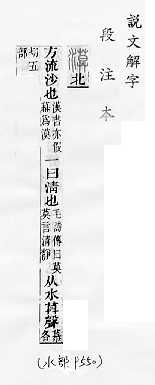 說文解字
段注本
漠北
方流沙也漢書亦假幕爲漠一曰淸也毛詩傳曰莫莫言淸靜从水莫聲慕各
切五部
(水部 P550)